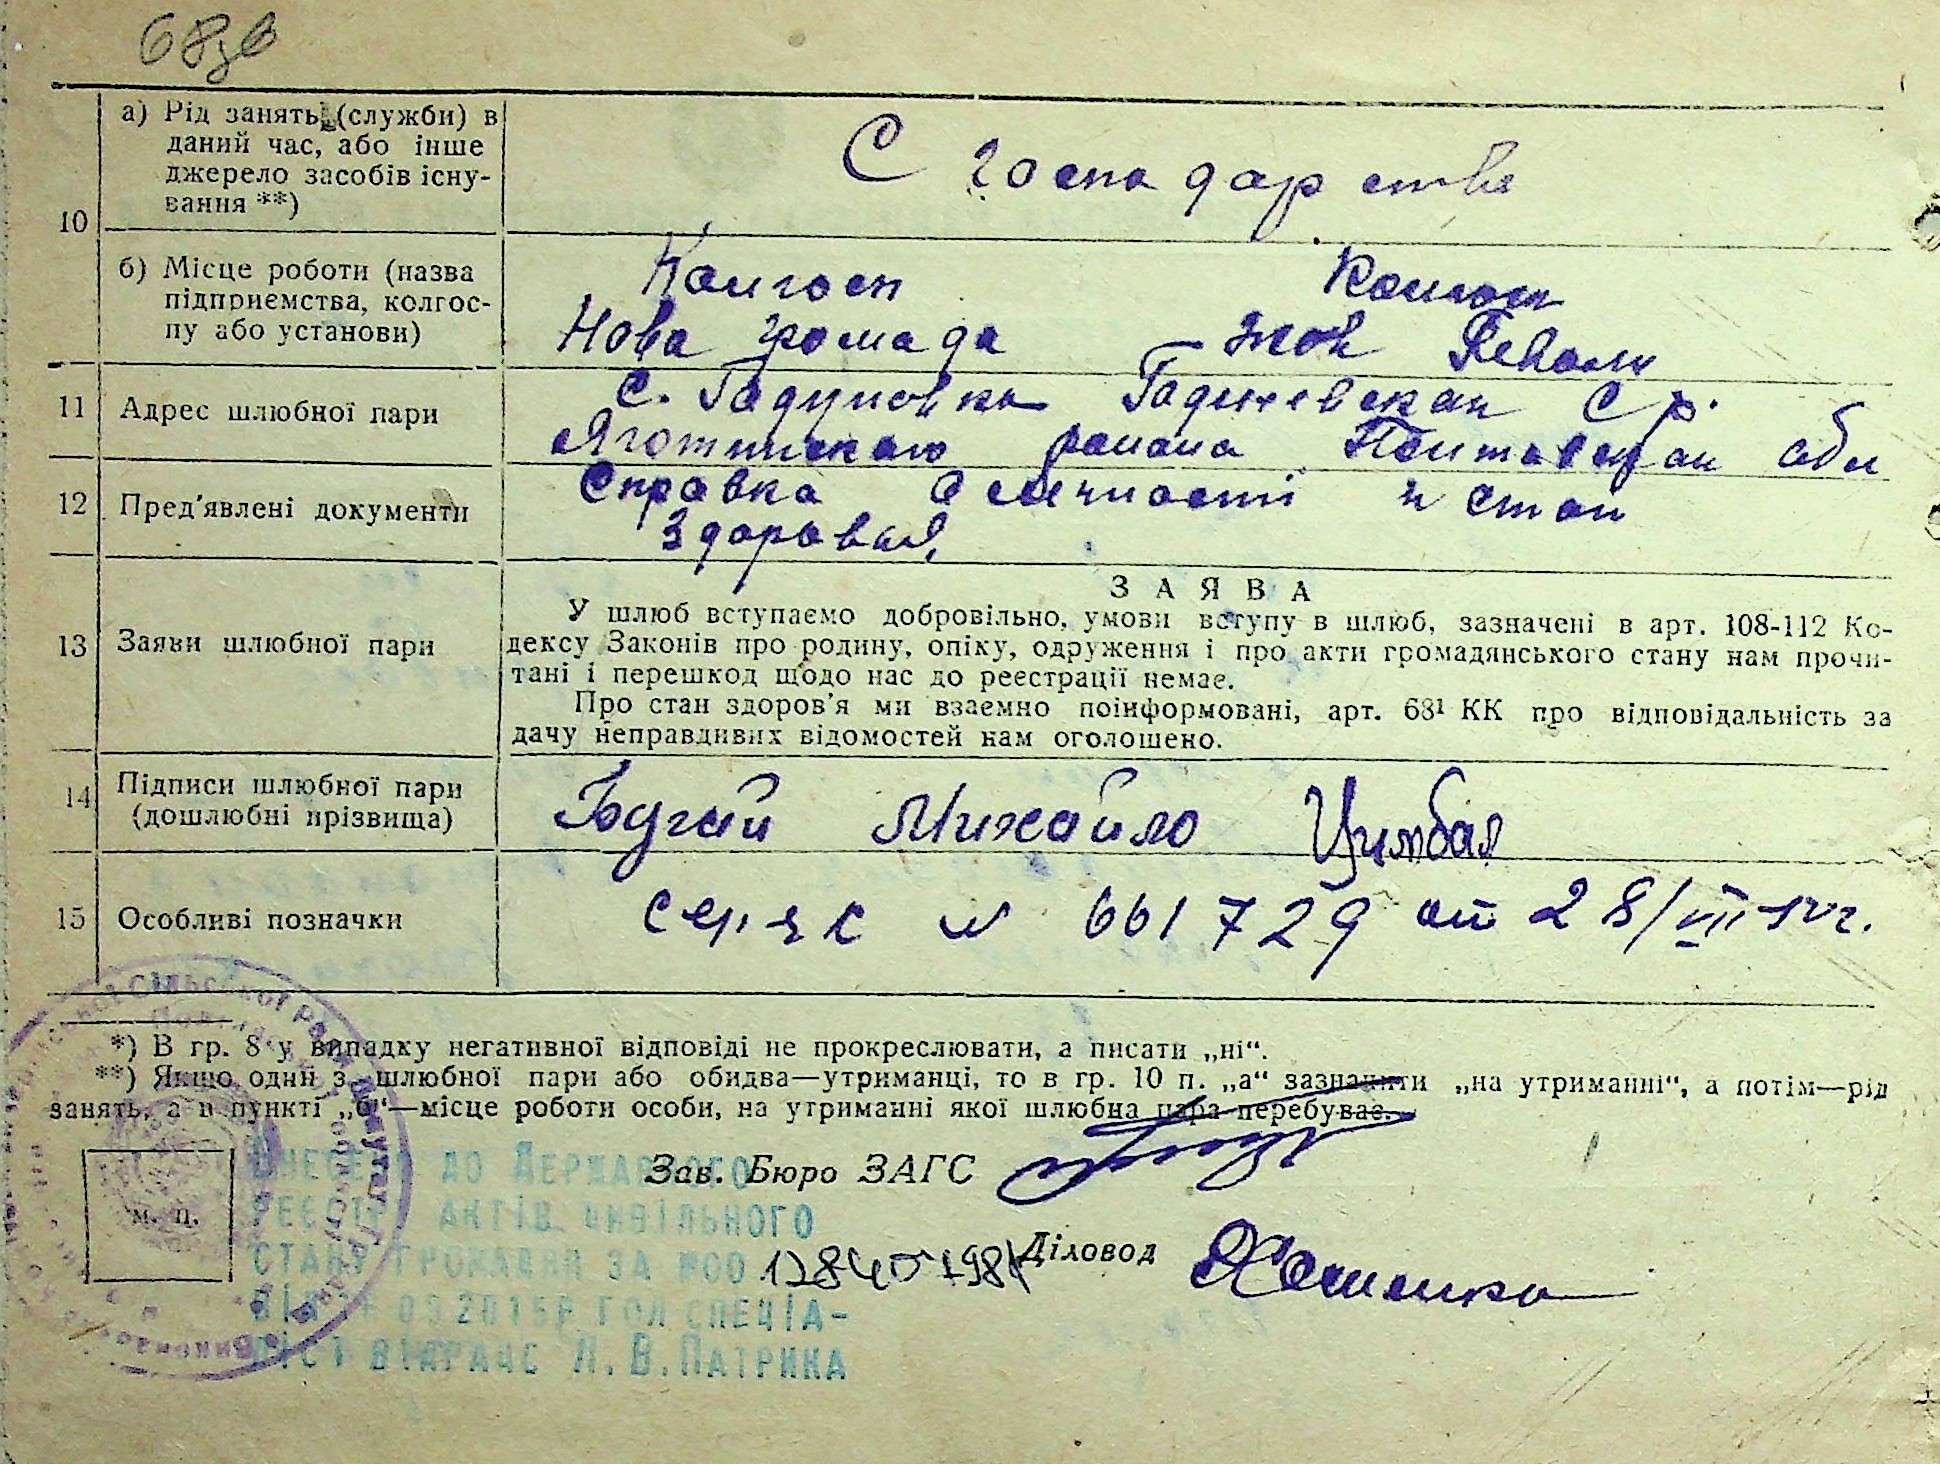 68зв
10
а) Рід занять (служби) в
даний час, або інше
джерело засобів існу-
вання **)
С господарстве
б) Місце роботи (назва
підприємства, колгос-
пу або установи)
Колгосп
Колгосп
Нова Громада
Жов Револ
11
Адрес шлюбної пари
С.
Яготинского района Полтавской обл
12
Пред'явлені документи
Справка о личності и стан
здоровья,
13
Заяви шлюбної пари
ЗАЯВА
У шлюб вступаємо добровільно, умови вступу в шлюб, зазначені в арт. 108-112 Ко-
дексу Законів про родину, опіку, одруження і про акти громадянського стану нам прочи-
тані і перешкод щодо нас до реєстрації немає.
Про стан здоров'я ми взаємно поінформовані, арт. 68¹ КК про відповідальність за
дачу неправдивих відомостей нам оголошено.
14
Підписи шлюбної пари
(дошлюбні прізвища)
Бугай Михайло Цимбал
15
Особливі позначки
№ 661729 от 28/VII
*) В гр. 8 у випадку негативної відповіді не прокреслювати, а писати „ні“.
**) Якщо один з шлюбної пари або обидва—утриманці, то в гр. 10 п. „а“ зазначити „на утриманні“, а потім—рід
занять, а в пункті „б“—місце роботи особи, на утриманні якої шлюбна пара перебуває.
Зав. Бюро ЗАГС
м. п.
Діловод
Внесено до Державного
реєстру актів цивільного
стану громадян за №00
2015р гол спеціа-
ліст відрацс Л. В. Патрика